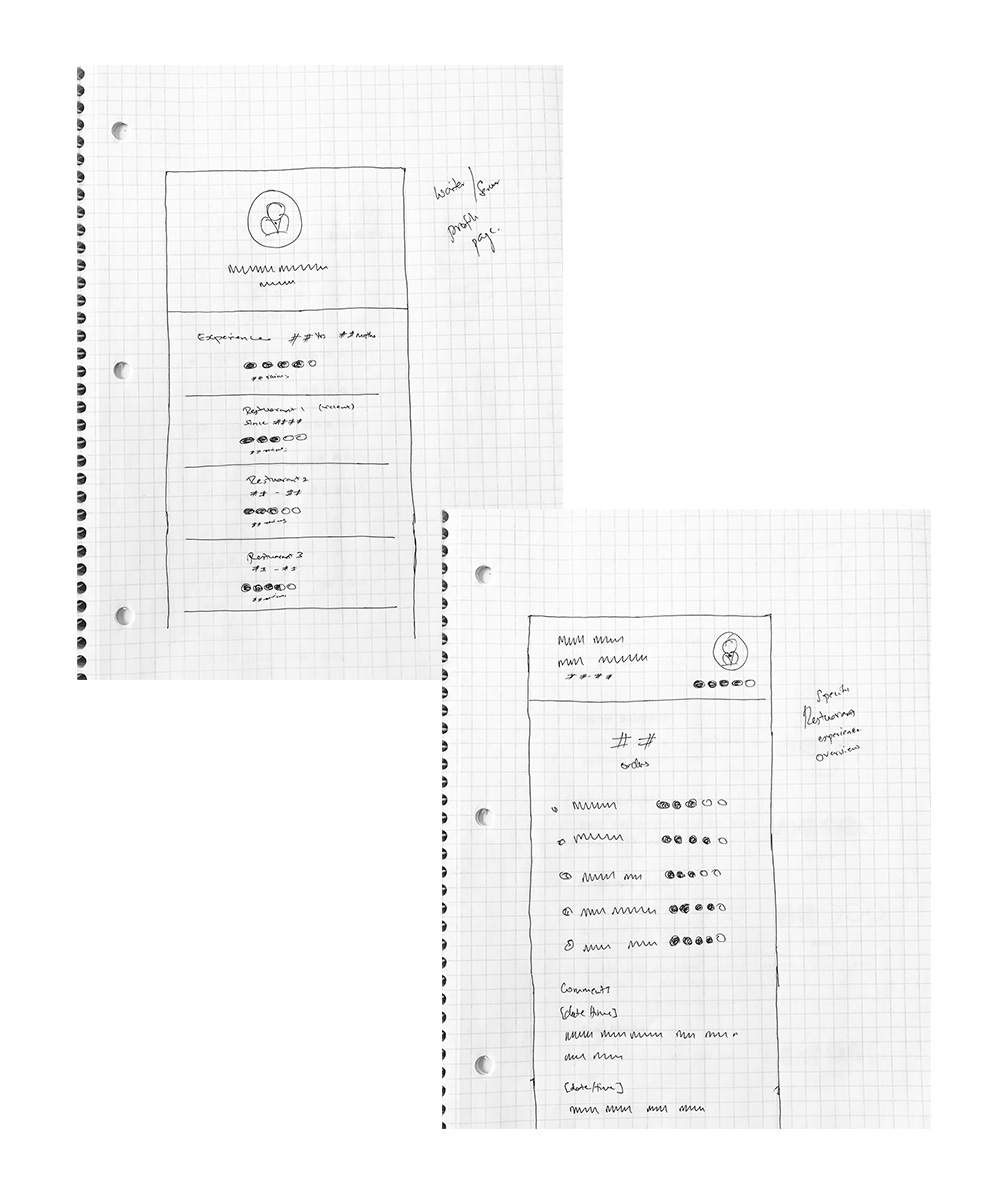 Waiter / Server
profile
page.
Experience ## Yrs ## months
## reviews
Restaurant 1 (recent)
Since ####
## reviews
Restaurant 2
## - ##
## reviews
Restaurant 3
## - ##
## reviews
## - ##
Specific
Restaurant
experience
overview
##
orders
Comments
[date/time]
[date/time]